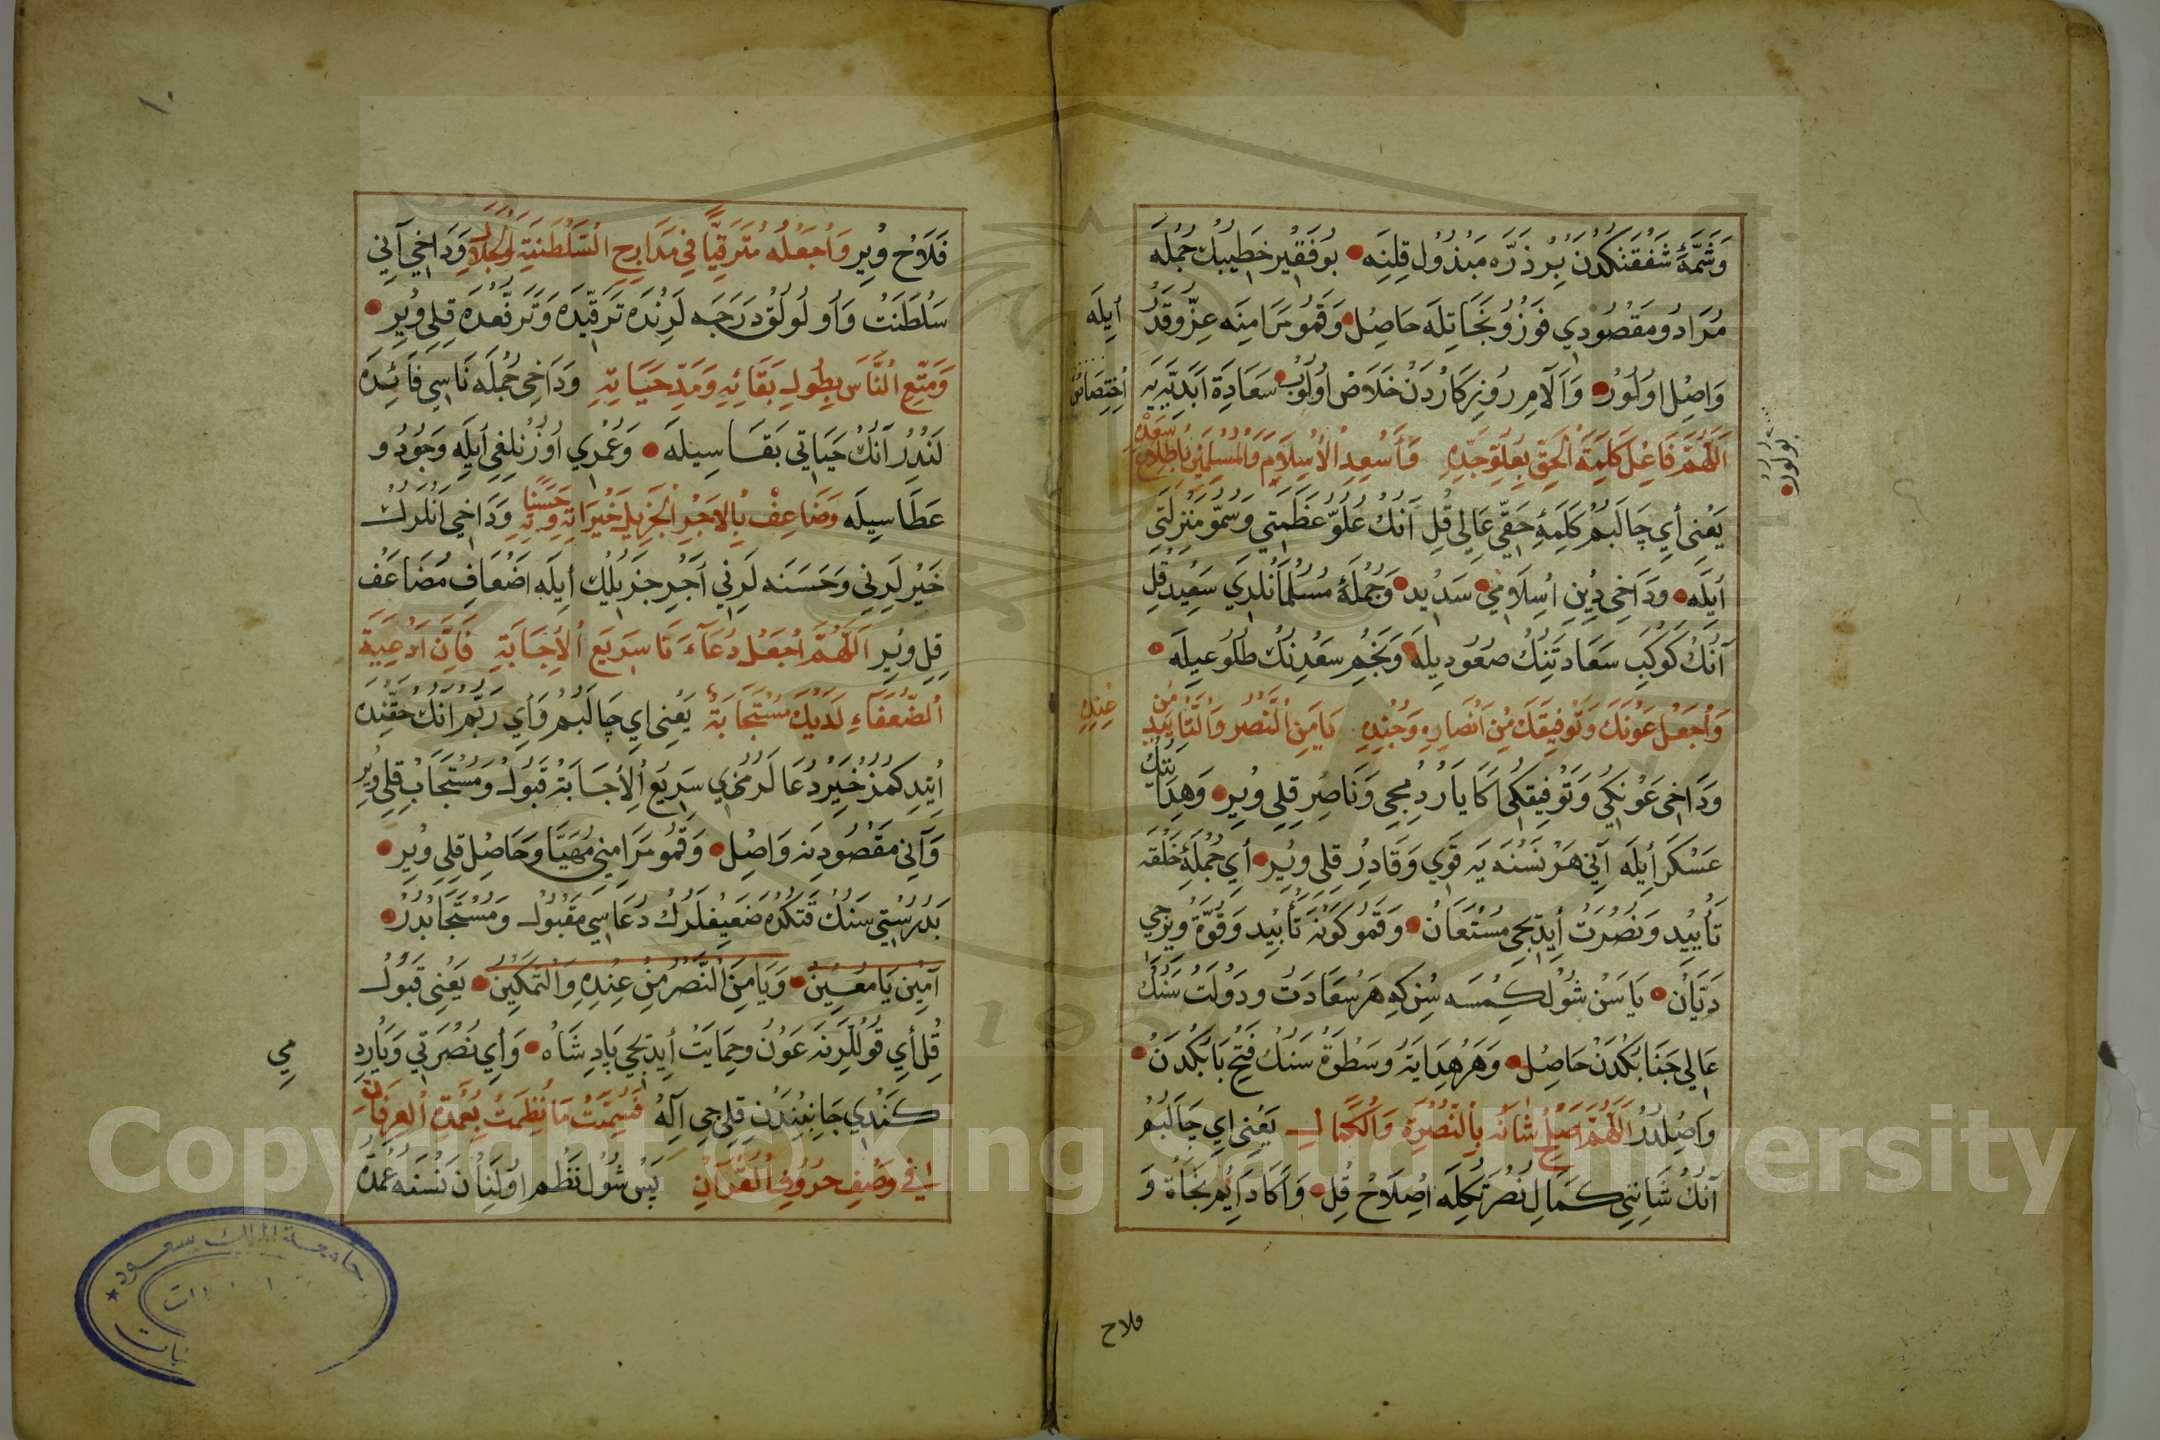 وَشَمَّۀِ شَفْقَتِكْدَنْ بِرْ ذَرَّه مَبْذُول قِلِنَه بُو فَقِيْر خَطِيبُكْ جُمْلَه
مُرَادُ و مَقْصُودِي فَوْزُ و نَجَاتِلَه حَاصِل وَقَمُو مَرَامِنَه عِزّ و قَدْرُ
أيلَه
وَاصِل اولُورْ وَآلَامِ رُوزِكَارْدَنْ خَلَاصْ اُولُوبْ سَعَادَةِ اَبَدِيَّه يَه
اِخْتِصَاصْ
بولور
اَللّٰهُمَّ فَاعْلِ كَلِمَةَ الْحَقِّ بِعُلُوِّ جَدِّهِ وَأَسْعِدِ الْاِسْلَامَ وَالْمُسْلِمِينَ بِاِطْلَاعِ سَعْدِهِ
يَعْنِي أَيْ چَالَبُمْ كَلِمَۀِ حَقِّي عَالِي قِلْ اَنُكْ عُلُوِّ عَظَمَتِي وَسُمُوِّ مَنْزِلَتِي
أيلَه وَدَاخِي دِينِ اِسْلَامِي سَدِيد وَجُمْلَۀِ مُسُلْمَانْلَرِي سَعِيد قِلْ
آنُكْ كَوْكَبِ سَعَادَتِنُكْ صُعُودِيلَه وَنَجْمِ سَعْدِنُكْ طُلُوعِيلَه
وَاجْعَلْ عَوْنَكَ وَتَوْفِيقَكَ مِنْ اَنْصَارِهِ وَجُنْدِهِ يَامَنِ النَّصْرُ وَالتَّأْيِيدُ مِنْ
عِنْدِهِ
وَدَاخِي عَوْنِكِي وَتَوْفِيقِكِي اَكَا يَارْدُمْجِي وَنَاصِر قِلِي وِيرْ وَهِدَايَتُكْ
عَسْكَر أيلَه آنِي هَرْ نَسْنَه يَه قَوِي وَقَادِرْ قِلِي وِيرْ أَيْ جُمْلَۀِ خَلْقَه
تَأْيِيد وَنُصْرَتْ أيدِيجِي مُسْتَعَانْ وَقَمُو كَوْنَه تَأْيِيد وَقُوَّة وِيرِجِي
دَيَّانْ يَاسَنْ شُولْ كِمْسَه سُنْ كِه هَرْ سَعَادَتْ و دَوْلَتْ سَنُكْ
عَالِي جَنَابِكْدَنْ حَاصِل وَهَرْ هِدَايَةْ وسَطْوَةْ سَنُكْ فَتْحِ بَابِكْدَنْ
وَاصِلْدُرْ اَللّٰهُمَّ اَصْلِحْ شَانَهُ بِالنُّصْرَةِ وَالْكَمَالِ يَعْنِي أَيْ چَالَبُمْ
آنُكْ شَانِنِي كَمَالِ نُصْرَتُكِلَه اِصْلَاحْ قِلْ وَاَكَا دَايِمْ نَجَاةْ وَ
فلاح
١٠
فَلَاحْ وِيرْ وَاجْعَلْهُ مُتَرَقِّيًا فِي مَدَارِجِ السَّلْطَنَةِ وَالْجَلَالِ وَدَاخِي آنِي
سَلْطَنَتْ وَاُولُولُقْ دَرَجَه لَرِنْدَه تَرَقِّيدَه وَتَرَفُّعْدَه قِلِي وِيرْ
وَمَتِّعِ النَّاسَ بِطُولِ بَقَائِهِ وَمَدِّ حَيَاتِهِ وَدَاخِي جُمْلَه نَاسِي فَائِدَه
لَنْدُرْ آنُكْ حَيَاتِي بَقَاسِيلَه وَعُمْرِي اُوزُنْلِغِي أيلَه وَجُودُ و
عَطَاسِيلَه وَضَاعِفْ بِالْاَجْرِ الْجَزِيلِ خَيْرَاتِهِ وَحَسَنَاتِهِ وَدَاخِي اَنْلَرُكْ
خَيْرلَرِنِي وَحَسَنَه لَرِنِي اَجْرِ جَزِيلِكْ أيلَه اَضْعَافِ مُضَاعَف
قِلِي وِيرْ اَللّٰهُمَّ اجْعَلْ دُعَاءَنَا سَرِيعَ الْاِجَابَةِ فَاِنَّ اَدْعِيَةَ
الضُّعَفَاءِ لَدَيْكَ مُسْتَجَابَةٌ يَعْنِي أَيْ چَالَبُمْ وَأَيْ رَبُّمْ اَنُكْ حَقِّنْدَه
اِيتْدِكُمُزْ خَيْر دُعَالَرُمُزِي سَرِيعُ الْاِجَابَةْ قَبُولْ وَمُسْتَجَابْ قِلِي وِيرْ
وَآنِي مَقْصُودِنَه وَاصِل وَقَمُو مَرَامِنِي مُهَيَّا وَحَاصِل قِلِي وِيرْ
بَدُرُسْتِي سَنُكْ قَتُكْدَه ضَعِيفْلَرُكْ دُعَاسِي مَقْبُولْ وَمُسْتَجَابْدُرْ
آمِينَ يَا مُعِينُ وَيَا مَنِ النَّصْرُ مِنْ عِنْدِهِ وَالتَّمْكِينُ يَعْنِي قَبُولْ
قِلْ أَيْ قُولْلَرِنَه عَوْنُ وحِمَايَتْ أيدِيجِي پَادِشَاهْ وَأَيْ نُصْرَتِي وَيَارِدِ
مِي
كَنْدِي جَانِبِنْدَنْ قِلِيجِي آلِهْ فَسَمَّيْتُ مَا نَظَمْتُ بِعُمْدَةِ الْعِرْفَانِ
فِي وَصْفِ حُرُوفِ الْقُرْآنِ پَسْ شُولْ نَظْم اُولِنَانْ نَسْنَه عُمْدَة
جامعة الملك سعود
Copyright © King Saud University